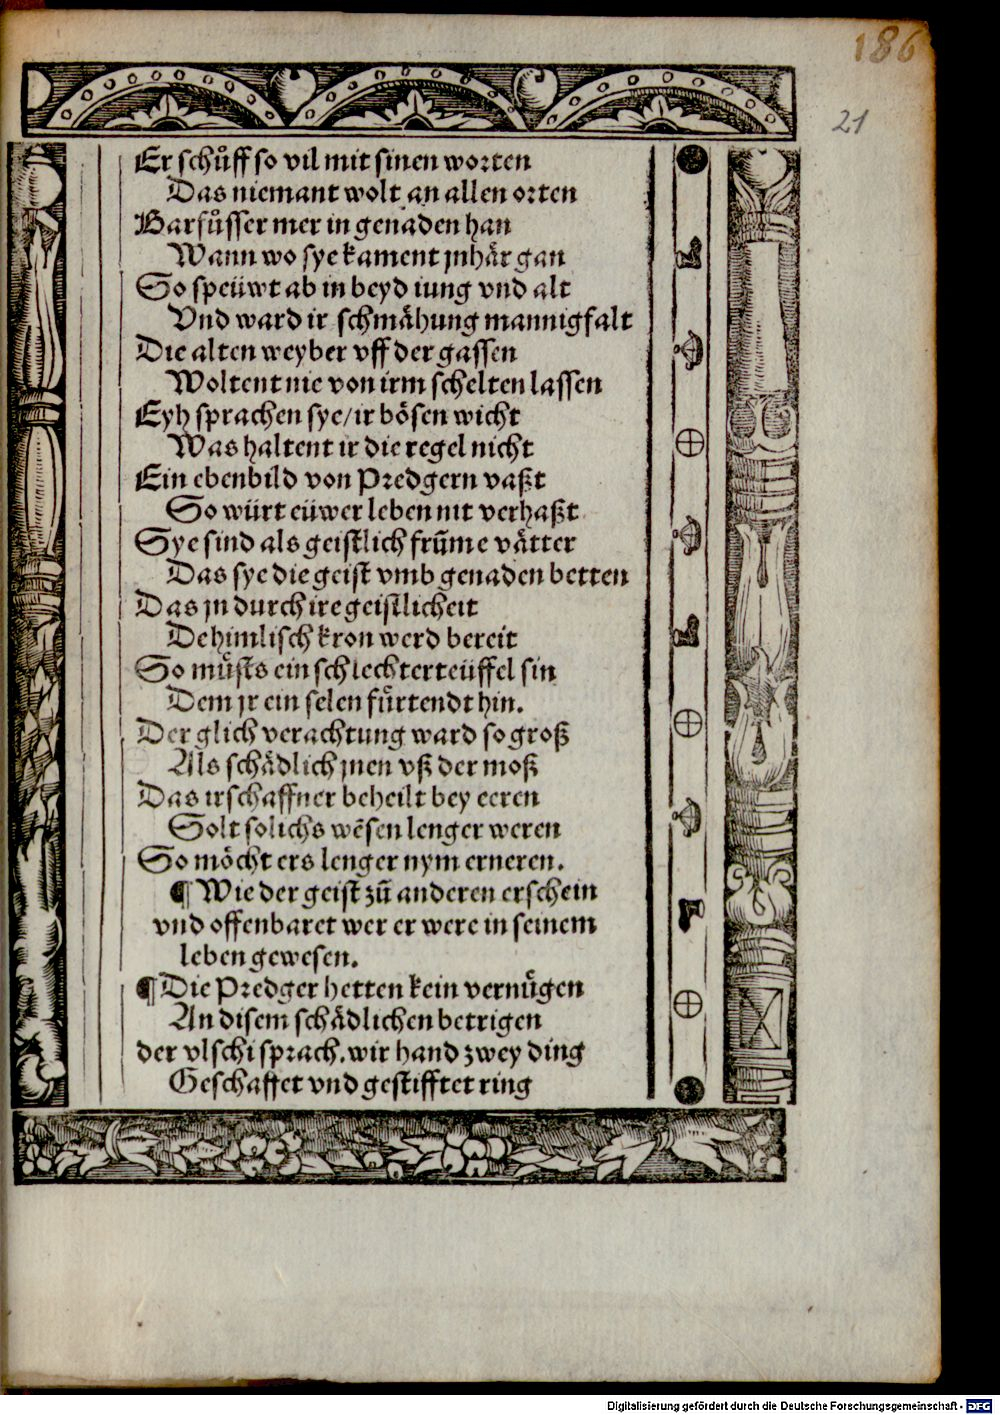 186
21
Er schůff so vil mit sinen worten
Das niemant wolt an allen orten
Barfůsser mer in genaden han
Wann wo sye kament jnhår gan
So speüwt ab in beyd iung vnd alt
Vnd ward ir schmåhung mannigfalt
Die alten weyber vff der gassen
Woltent nie von irm schelten lassen
Eyh sprachen sye/ir bösen wicht
Was haltent ir die regel nicht
Ein ebenbild von Predgern vaßt
So würt eüwer leben nit verhaßt
Sye sind als geistlich frūme våtter
Das sye die geist vmb genaden betten
Das jn durch ire geistlicheit
De himlisch kron werd bereit
So můsts ein schlechter teüffel sin
Dem jr ein selen fůrtendt hin.
Der glich verachtung ward so groß
Als schådlich jnen vß der moß
Das ir schaffner beheilt bey eeren
Solt solichs wēsen lenger weren
So möcht ers lenger nym erneren.
¶ Wie der geist zū anderen erschein
vnd offenbaret wer er were in seinem
leben gewesen.
¶ Die Predger hetten kein vernůgen
An disem schådlichen betrigen
der vlschi sprach. wir hand zwey ding
Geschaffet vnd gestifftet ring
Digitalisierung gefördert durch die Deutsche Forschungsgemeinschaft - DFG